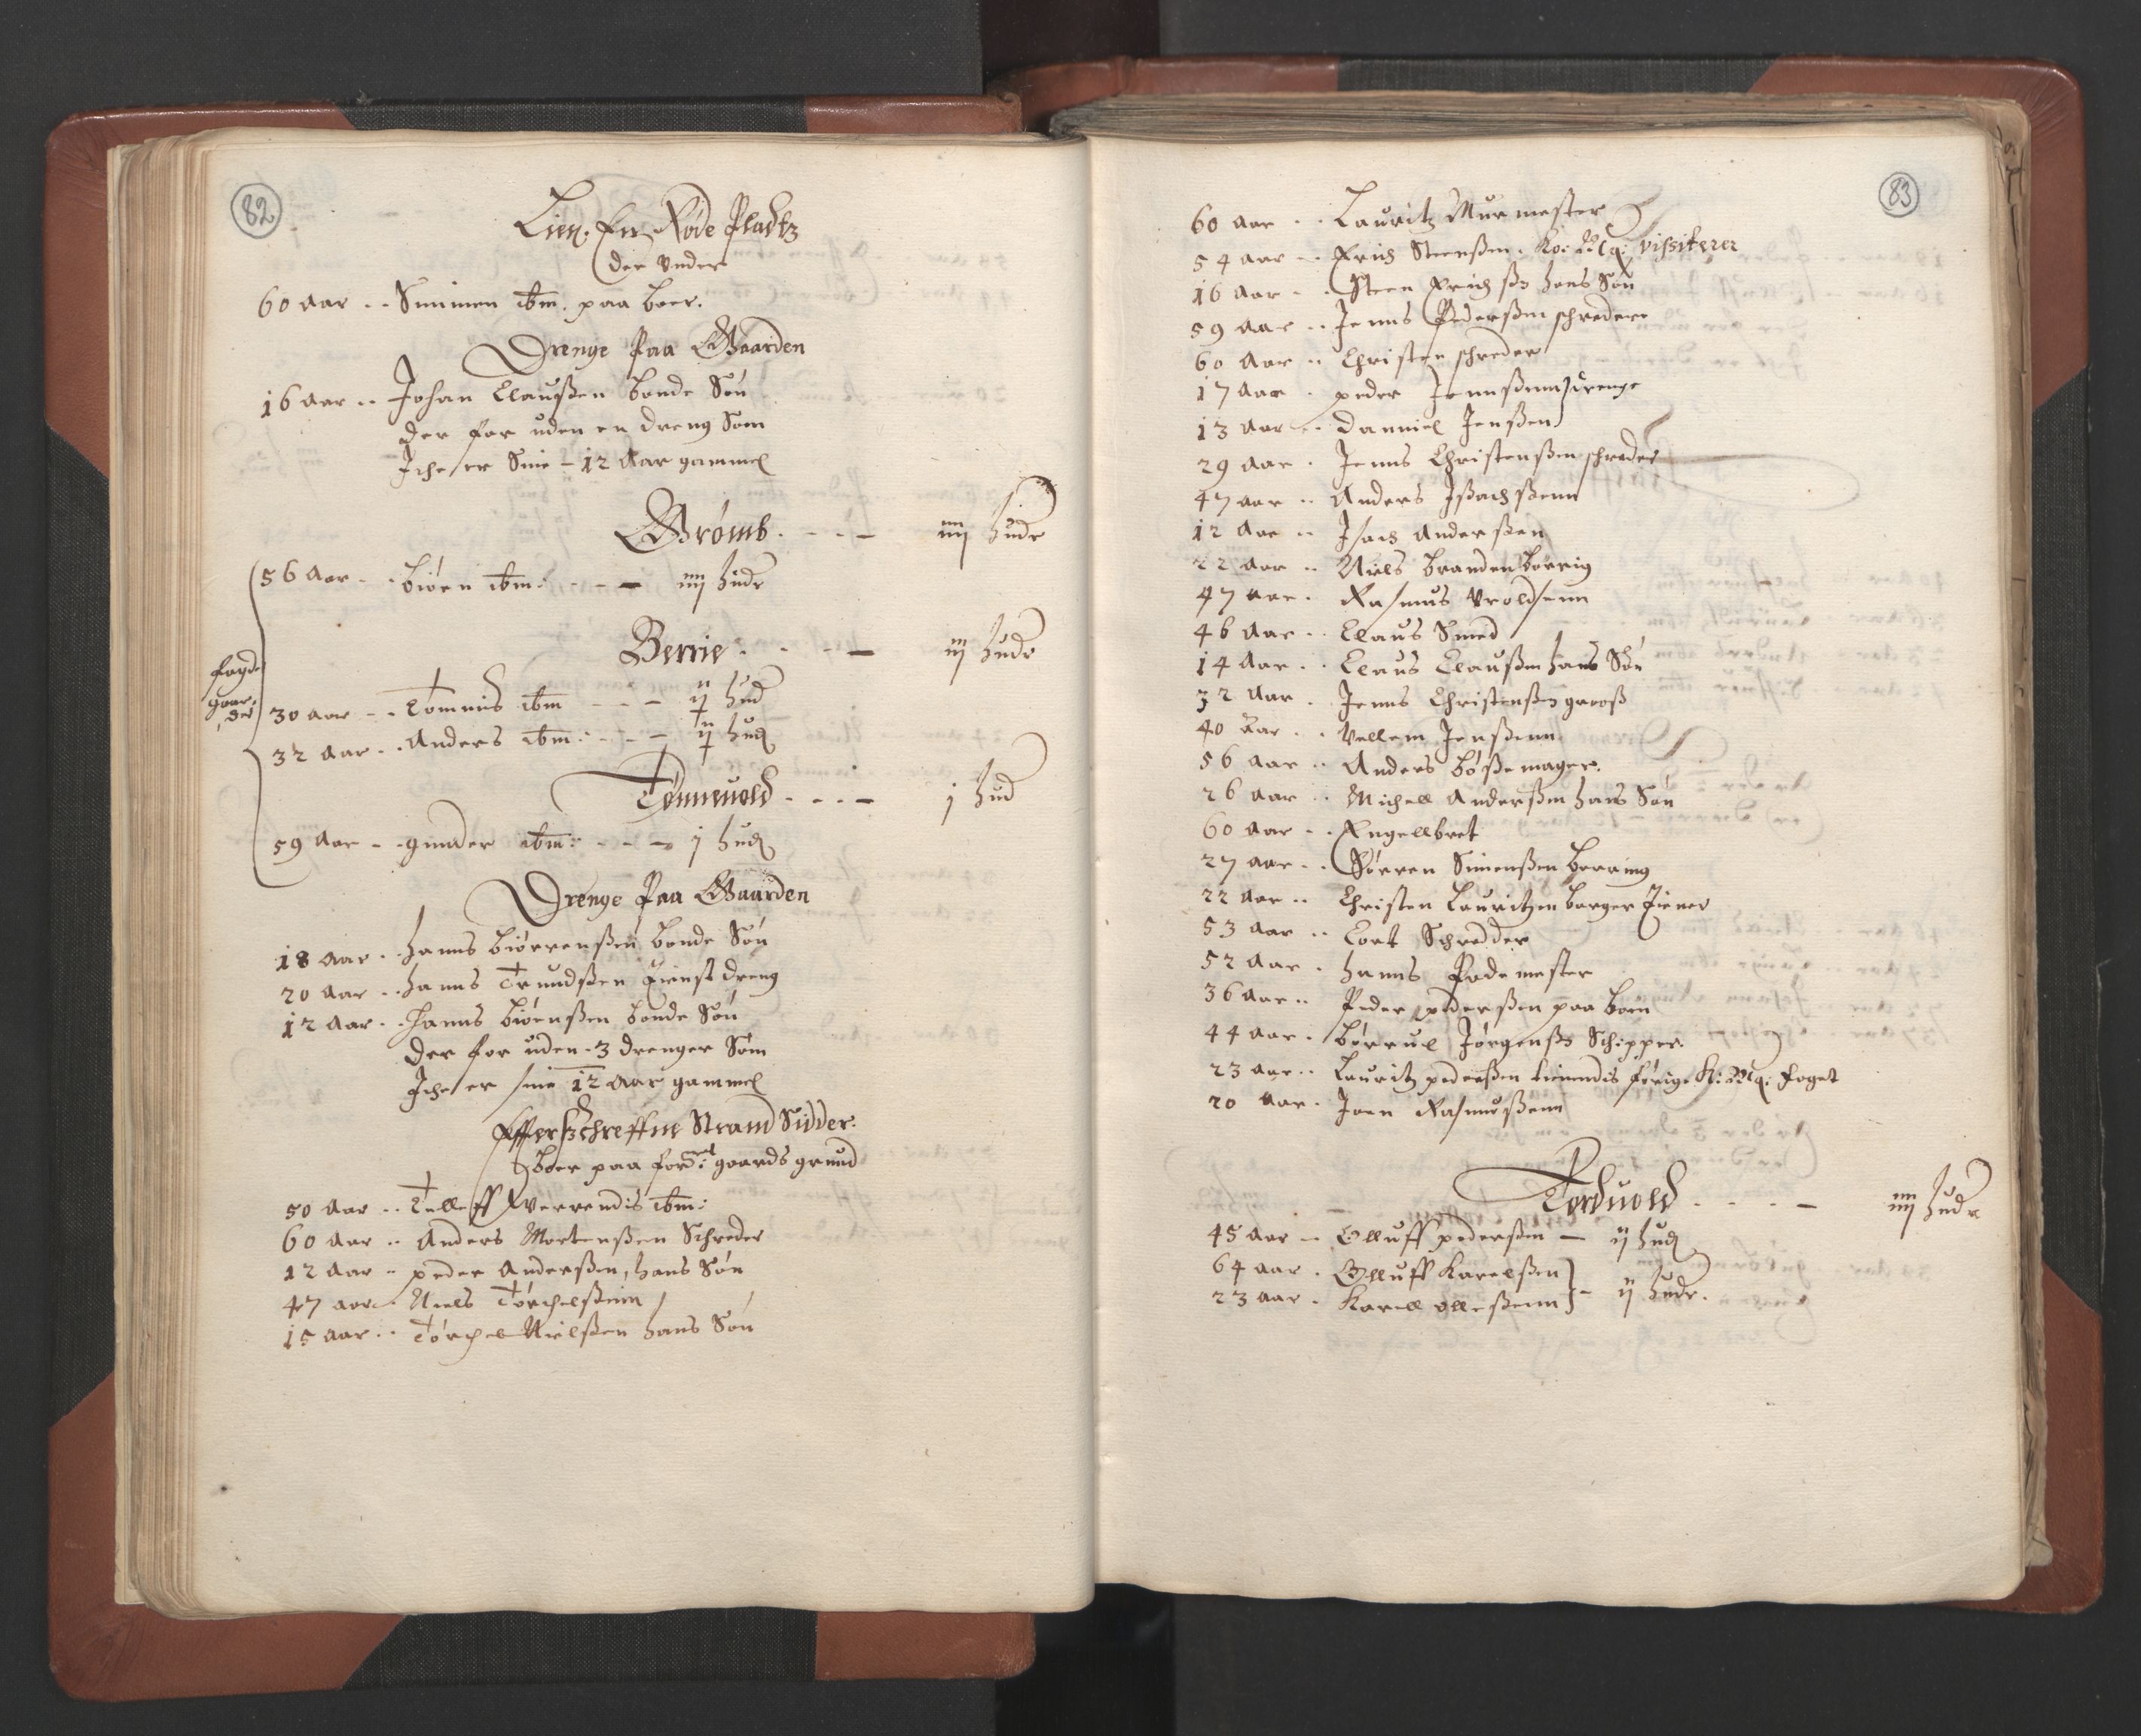 82
Lien. En Røde Pladtz
der Under
60 aar .. Simmen ibm. paa boer.
Drenge Paa Gaarden
16 aar .. Johan Claussen bonde Søn
der for uden en dreng Som
Iche er Sine - 12 Aar gammel
Grømb . - - - iiij huder
56 Aar - . Biøen ibm: - - - iiij hudr
Berrie . - . - iiij hudr
fogde
gaar
der
30 aar - . Tommis ibm - - - ij hud
32 aar - . Anders ibm: - - - ij hud
Tønneuold - . . - j hud
59 Aar - - gunder ibm: - - - j hud
Drenge Paa Gaarden
18 aar . . hanns Biørrenssen bonde Søn
20 aar . . hanns Trundssen tienst dreng
12 aar . . hanns Biøenssen bonde Søn
der for uden - 3 drenger Som
Iche er sine 12 aar gammel
Effterschreffne Strand Sidder:
boer paa ford: gaards grund
50 aar .. Telleff Suerrendis ibm:
60 aar .. Anders Mortenssen Schreder
12 aar .. peder Anderssen, hans Søn
47 aar . Niels Tørchelssenn
15 aar .. Tørchel Nielssen hans Søn
83
60 aar . . Lauritz Murmester
54 aar - . Erich Steenssen. Ko: Ma: vissiterer
16 aar - . Steen Erichss: hans Søn
59 aar .. Jenns Pederssen schreder
60 aar .. Christen schreder
17 aar . peder Jennssenn drenge
13 aar .. Danniel Jenssen
29 aar . Jenns Christenssen schreder
47 aar .. Anders Issachssenn
12 aar .. Isach Anderssen
22 aar .. Niels Brandenborrig
47 aar . Rasmus Vroldsenn
46 aar .. Claus Smed
14 aar . . Claus Claussen hans Søn
32 aar . Jenns Christenss: grooss
40 aar . . Vellem Jenssenn
56 aar .. Anders Bøssemager.
26 aar .. Michell Anderssen hans Søn
60 aar - . Engellbret
27 aar . . Sørren Simenssen Borring
22 aar .. Christen Lauritzen borger tiener
53 aar .. Cort Schredder
52 aar . hanns Rodemester
36 aar .. Peder pederssen paa boen
44 aar . Børruel Jørgenss: Schipper.
23 aar .. Lauritz pederssen tienendis forige K: Ma: foget
20 aar . Joen Rasmussenn
Torduold . - . - iiij hudr
45 aar - Olluff pederssen - ij hud
64 aar . Olluff Karelssen
23 aar . Karell ollessenn - ij hudr.